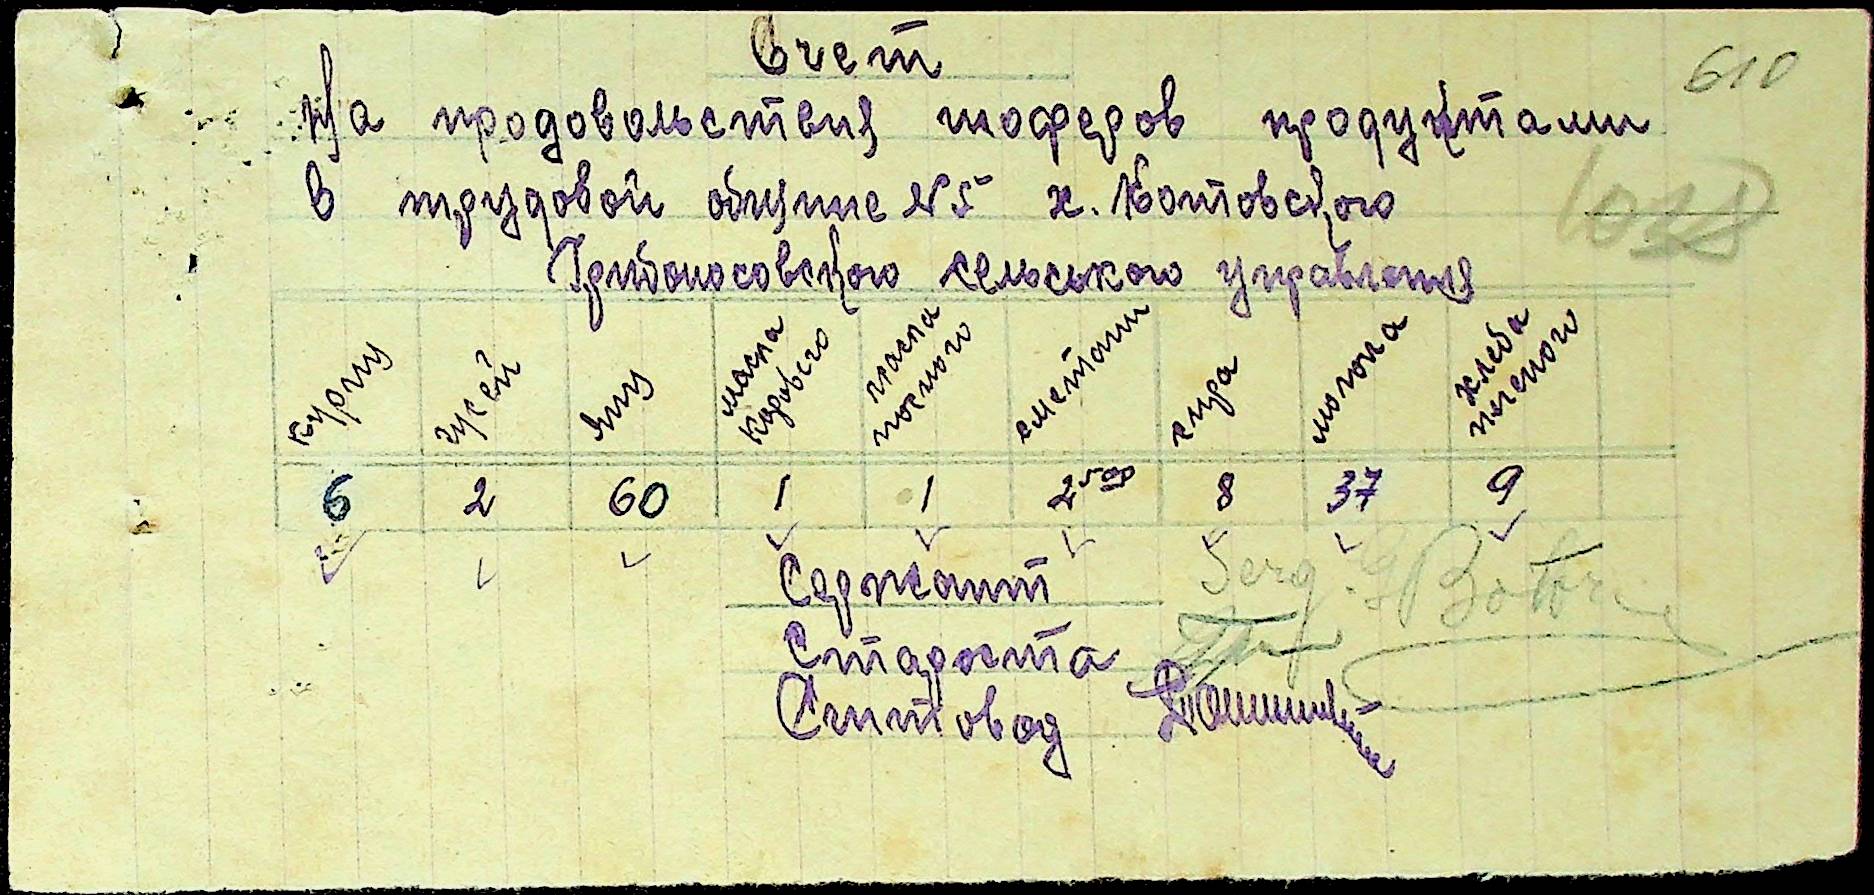 Счет
На продовольствия шоферов продуктами
в трудовой общине №5 х. Котовского
Грибоносовского сельського управления
610
1018
куриц
гусей
яиц
масла коровьего
масла посного
сметани
сира
молока
хлеба печеного
6 2 60 1 1 2 500 8 37 9
Сержант Serg. Botor
Староста
Считовод